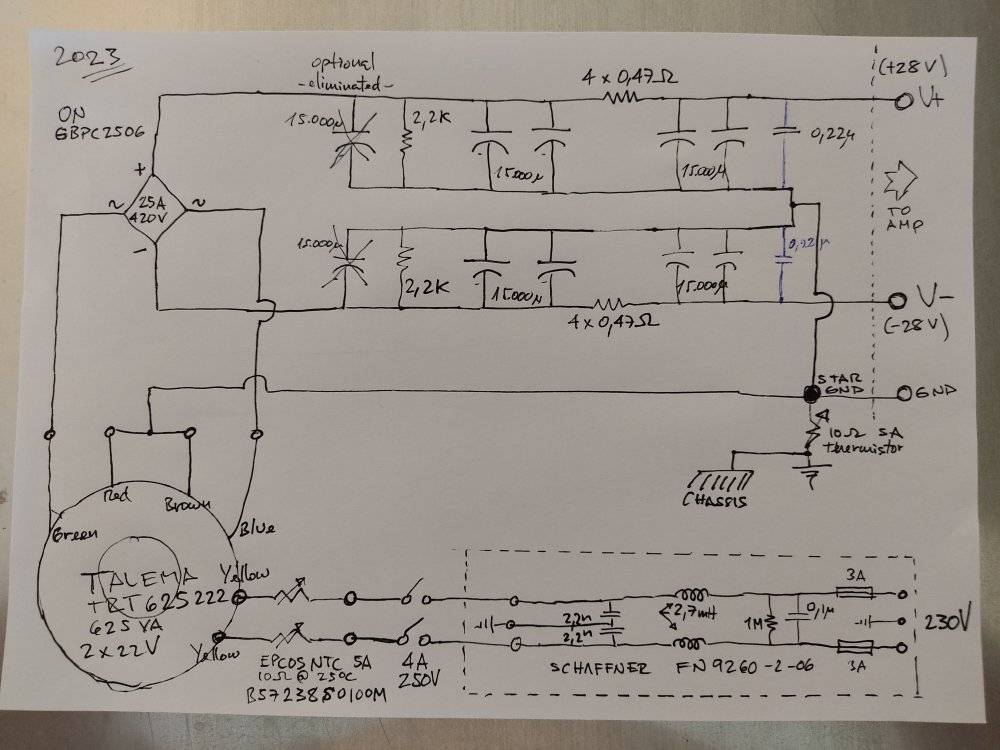 2023
optional
-eliminated-
4 x 0,47Ω
(+28V)
V+
ON
GBPC2506
15.000µ
2,2K
15.000µ
15.000µ
0,22µ
+
~
25A
420V
~
-
TO
AMP
15.000µ
2,2K
15.000µ
15.000µ
0,22µ
4 x 0,47Ω
V-
(-28V)
STAR
GND
GND
10Ω 5A
thermistor
CHASSIS
Red
Brown
Green
Blue
TALEMA
625VA
2x22V
Yellow
Yellow
EPCOS NTC 5A
10Ω @ 250C
B57238S0100M
4A
250V
2,2n
2,2n
2,7mH
1M
0,1µ
3A
3A
230V
SCHAFFNER FN9260-2-06